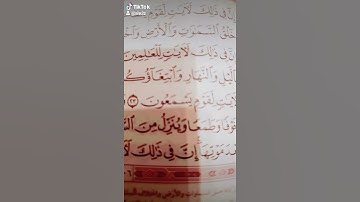 TikTok
نَّ فِي ذَٰلِكَ لَآيَٰتٍ لِّقَوْمٍ
خَلْقُ ٱلسَّمَٰوَٰتِ وَٱلْأَرْضِ وَٱخْ
نَّ فِي ذَٰلِكَ لَآيَٰتٍ لِّلْعَٰلِمِينَ
ٱلَّيْلِ وَٱلنَّهَارِ وَٱبْتِغَآؤُكُ
لَآيَٰتٍ لِّقَوْمٍ يَسْمَعُونَ ٢٣
خَوْفًا وَطَمَعًا وَيُنَزِّلُ مِنَ
دَ مَوْتِهَآ إِنَّ فِي ذَٰلِكَ